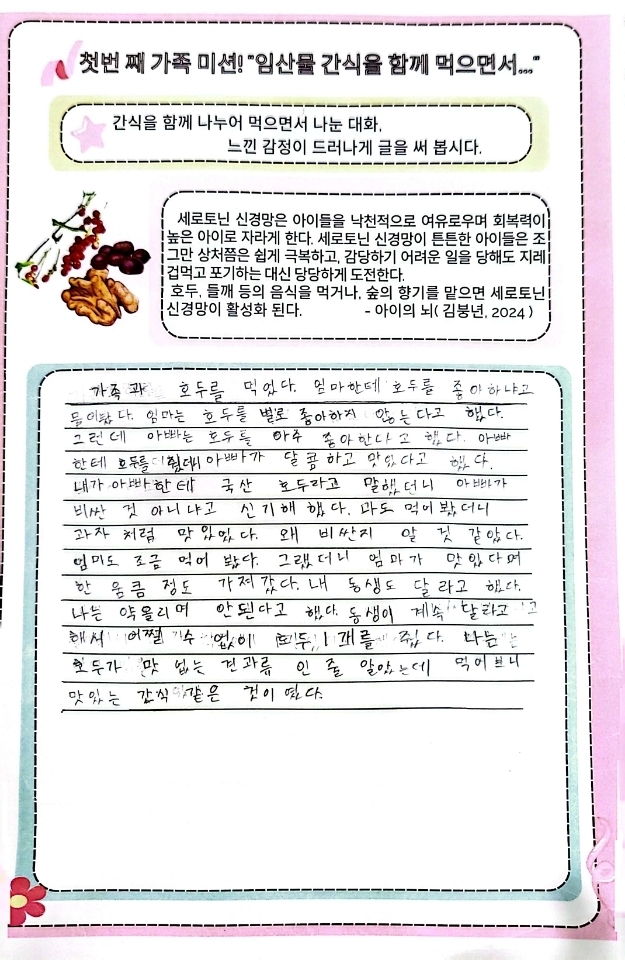 첫번 째 가족 미션! "임산물 간식을 함께 먹으면서..."
간식을 함께 나누어 먹으면서 나눈 대화,
느낀 감정이 드러나게 글을 써 봅시다.
세로토닌 신경망은 아이들을 낙천적으로 여유로우며 회복력이
높은 아이로 자라게 한다. 세로토닌 신경망이 튼튼한 아이들은 조
그만 상처쯤은 쉽게 극복하고, 감당하기 어려운 일을 당해도 지레
겁먹고 포기하는 대신 당당하게 도전한다.
호두, 들깨 등의 음식을 먹거나, 숲의 향기를 맡으면 세로토닌
신경망이 활성화 된다. - 아이의 뇌( 김붕년, 2024 )
가족과 호두를 먹었다. 엄마한테 호두를 좋아하냐고
물어봤다. 엄마는 호두를 별로 좋아하지 않는다고 했다.
그런데 아빠는 호두를 아주 좋아한다고 했다. 아빠
한테 호두를 줬더니 아빠가 달콤하고 맛있다고 했다.
내가 아빠한테 국산 호두라고 말했더니 아빠가
비싼 것 아니냐고 신기해 했다. 나도 먹어봤더니
과자 처럼 맛있었다. 왜 비싼지 알 것 같았다.
엄미도 조금 먹어 봤다. 그랬더니 엄마가 맛있다며
한 움큼 정도 가져갔다. 내 동생도 달라고 했다.
나는 약올리며 안된다고 했다. 동생이 계속 달라고
해서 어쩔 수 없이 호두 1개를 줬다. 나는
호두가 맛 없는 견과류 인 줄 알았는데 먹어보니
맛있는 간식 같은 것이 였다.